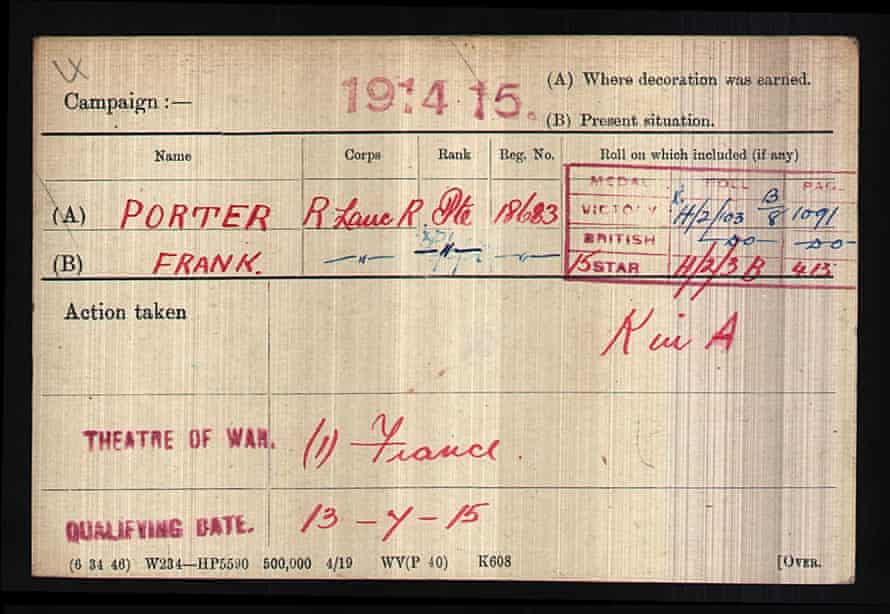 Campaign :—
1914 15.
(A) Where decoration was earned.
(B) Present situation.
Name Corps Rank Reg. No. Roll on which included (if any)
MEDAL ROLL PAGE
(A) PORTER R Lanc R Pte 18683 VICTORY H/2/103 B/8 1091
BRITISH —do— —do—
(B) FRANK. —"— —"— —"— 15 STAR H/2/3 B 413
Action taken
K in A
THEATRE OF WAR. (1) France.
QUALIFYING DATE. 13-7-15
(6 34 46) W234—HP5590 500,000 4/19 WV(P 40) K608 [OVER.